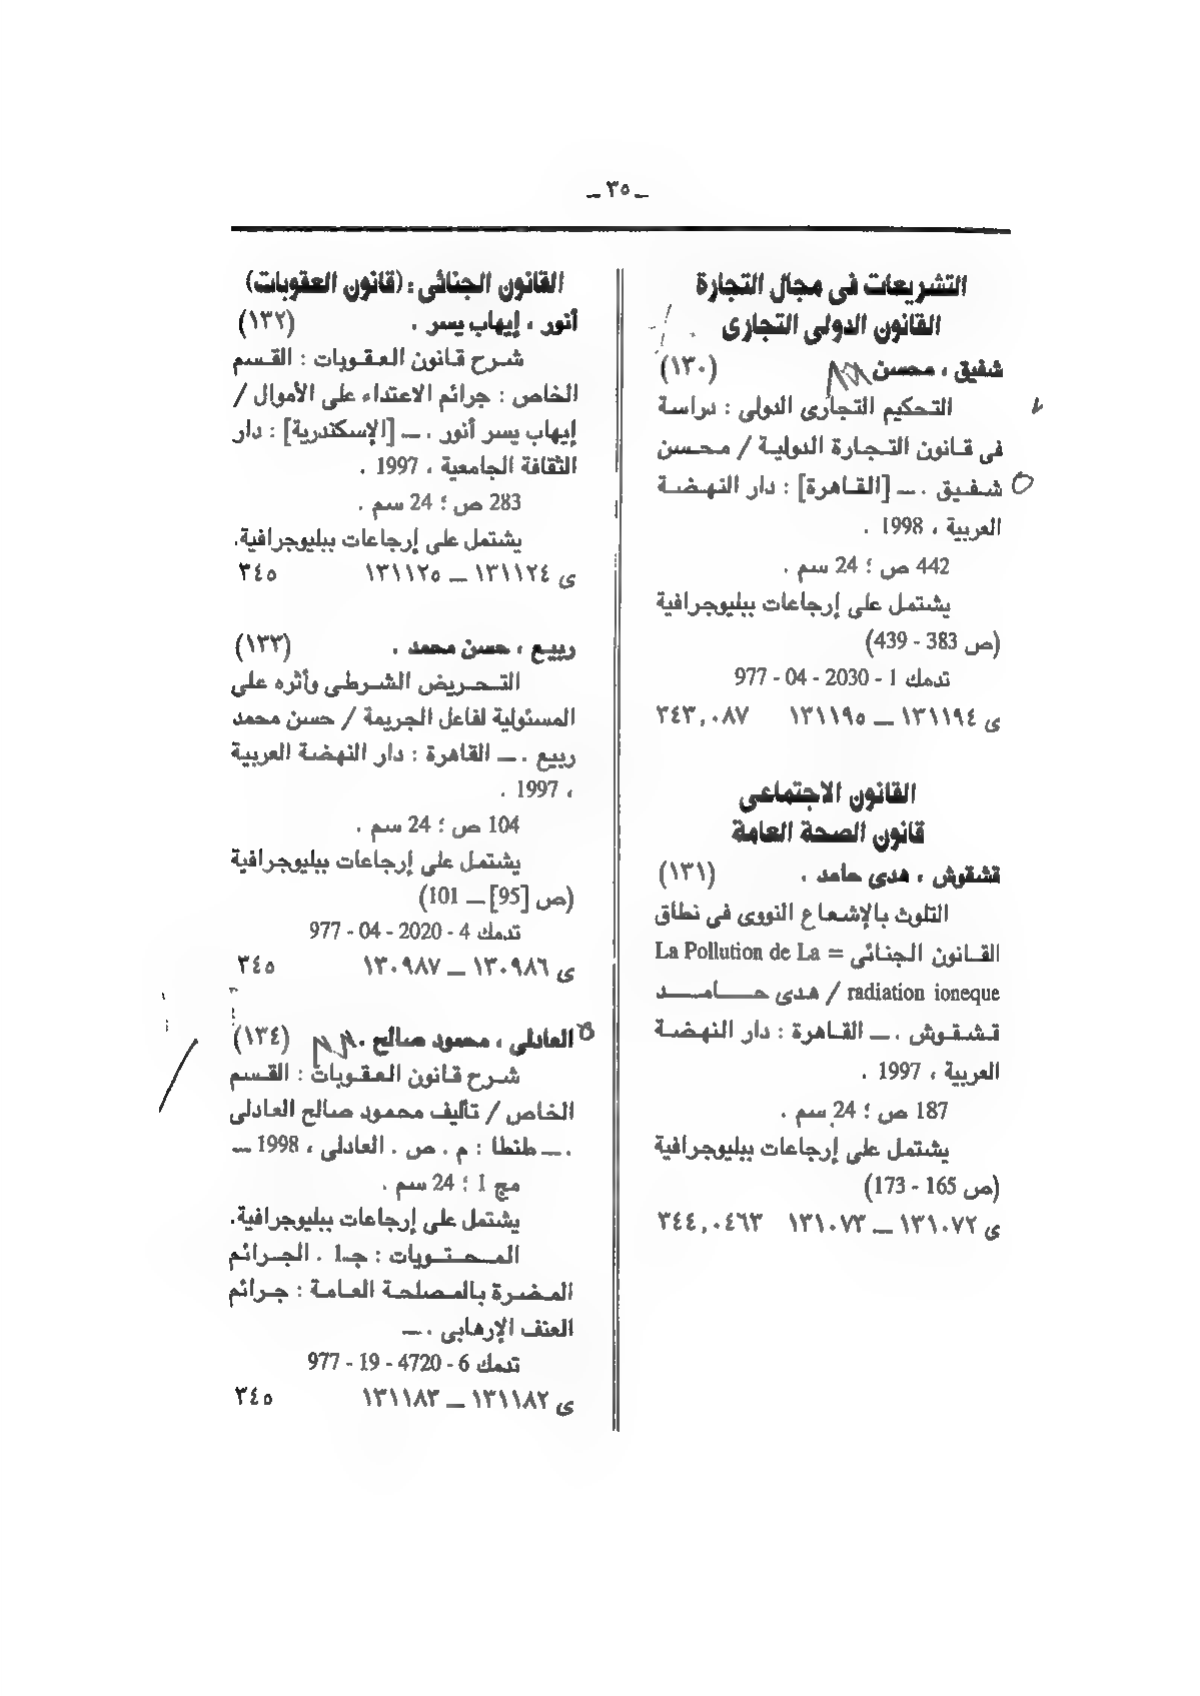 ـ ٣٥ ـ
التشريعات فى مجال التجارة
القانون الدولى التجارى
شفيق ، محسن (١٣٠)
التحكيم التجارى الدولى : دراسة
فى قانون التجارة الدولية / محسن
شفيق . ـ [القاهرة] : دار النهضة
العربية ، 1998 .
442 ص ؛ 24 سم .
يشتمل على إرجاعات ببليوجرافية
(ص 383 - 439)
تدمك 1 - 2030 - 04 - 977
ى ١٣١١٩٤ ــ ١٣١١٩٥ ٣٤٣,٠٨٧
القانون الاجتماعى
قانون الصحة العامة
قشقوش ، هدى حامد . (١٣١)
التلوث بالإشعاع النووى فى نطاق
القانون الجنائى = La Pollution de La
radiation ioneque / هدى حامد
قشقوش . ـ القاهرة : دار النهضة
العربية ، 1997 .
187 ص ؛ 24 سم .
يشتمل على إرجاعات ببليوجرافية
(ص 165 - 173)
ى ١٣١٠٧٢ ــ ١٣١٠٧٣ ٣٤٤,٠٤٦٣
القانون الجنائى : (قانون العقوبات)
أنور ، إيهاب يسر . (١٣٢)
شرح قانون العقوبات : القسم
الخاص : جرائم الاعتداء على الأموال /
إيهاب يسر أنور . ـ [الإسكندرية] : دار
الثقافة الجامعية ، 1997 .
283 ص ؛ 24 سم .
يشتمل على إرجاعات ببليوجرافية.
ى ١٣١١٢٤ ــ ١٣١١٢٥ ٣٤٥
ربيع ، حسن محمد . (١٣٣)
التحريض الشرطى وأثره على
المسئولية لفاعل الجريمة / حسن محمد
ربيع . ـ القاهرة : دار النهضة العربية
، 1997 .
104 ص ؛ 24 سم .
يشتمل على إرجاعات ببليوجرافية
(ص [95] ــ 101)
تدمك 4 - 2020 - 04 - 977
ى ١٣٠٩٨٦ ــ ١٣٠٩٨٧ ٣٤٥
العادلى ، محمود صالح . (١٣٤)
شرح قانون العقوبات : القسم
الخاص / تأليف محمود صالح العادلى
. ـ طنطا : م . ص . العادلى ، 1998 ــ
مج 1 ؛ 24 سم .
يشتمل على إرجاعات ببليوجرافية.
المحتويات : جـ1 . الجرائم
المضرة بالمصلحة العامة : جرائم
العنف الإرهابى . ـ
تدمك 6 - 4720 - 19 - 977
ى ١٣١١٨٢ ــ ١٣١١٨٣ ٣٤٥